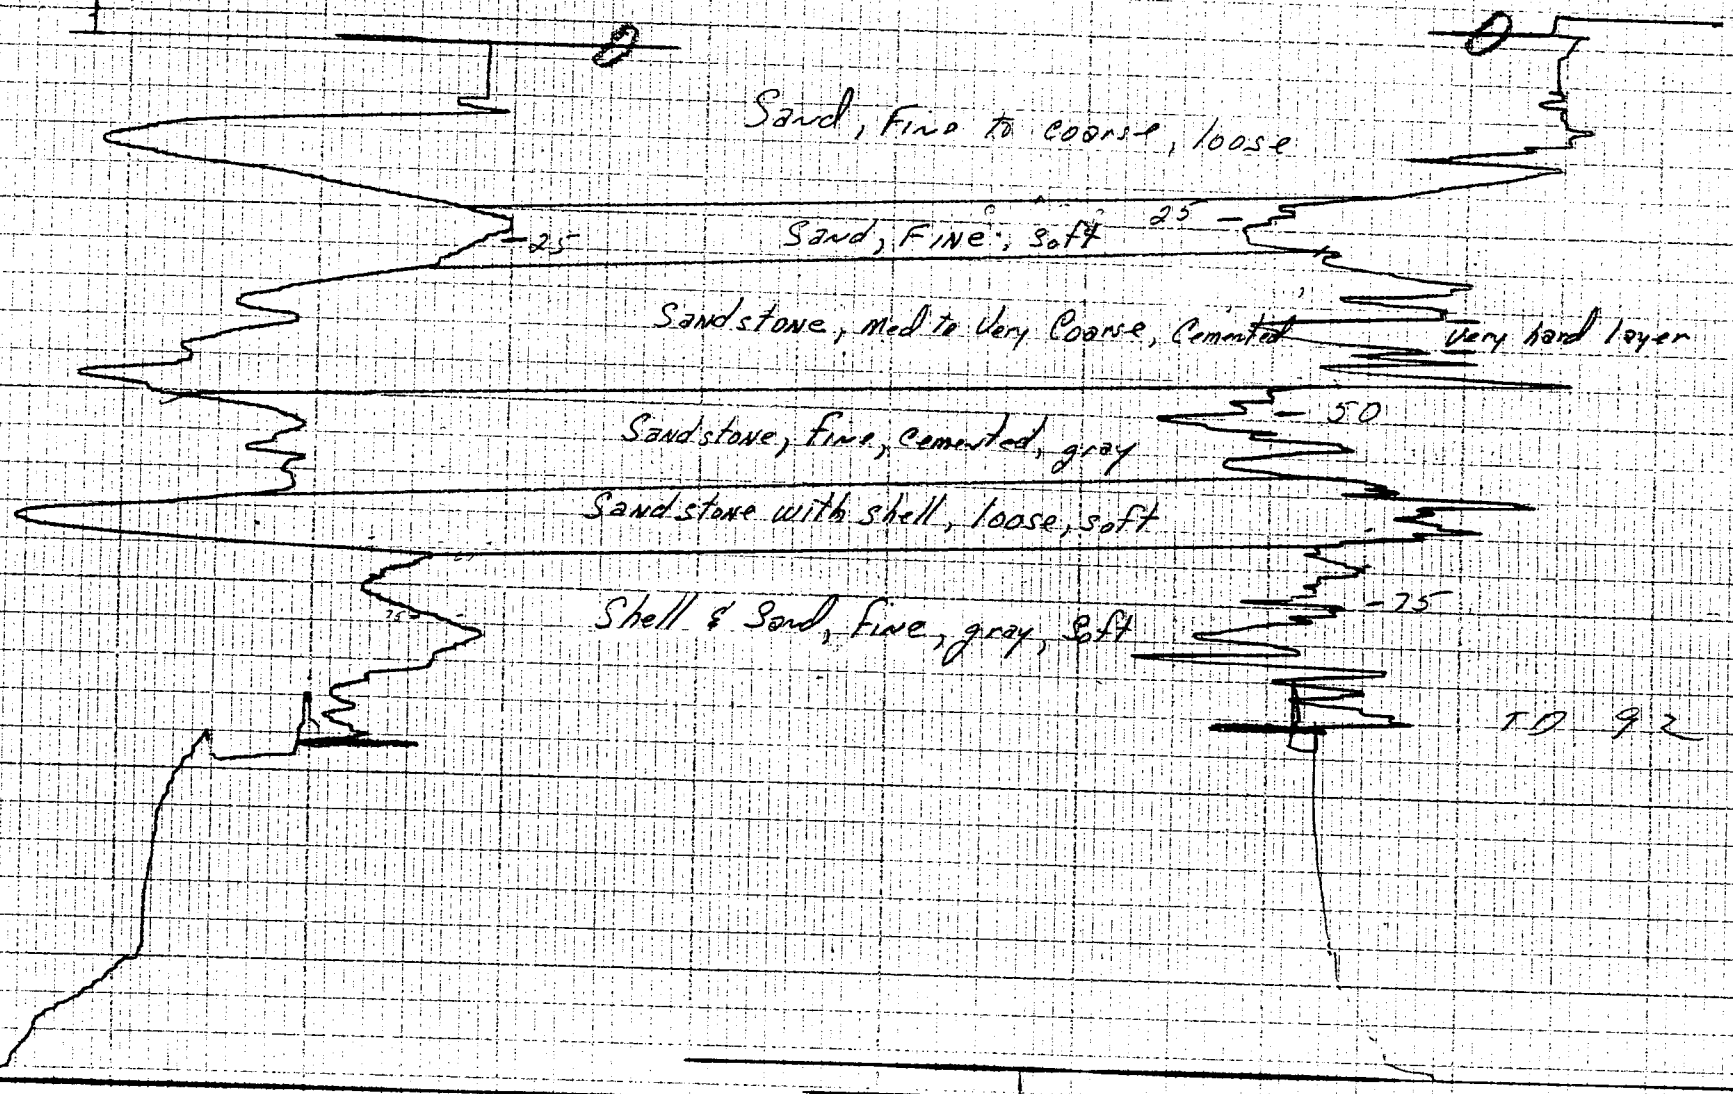 0 0
Sand, Fine to coarse, loose
25
25 Sand, Fine, soft
Sandstone, med to Very Coarse, Cemented
Very hard layer
50
Sandstone, fine, cemented, gray
Sandstone with shell, loose, soft
75
75 Shell & Sand, fine, gray, Soft
TD 92